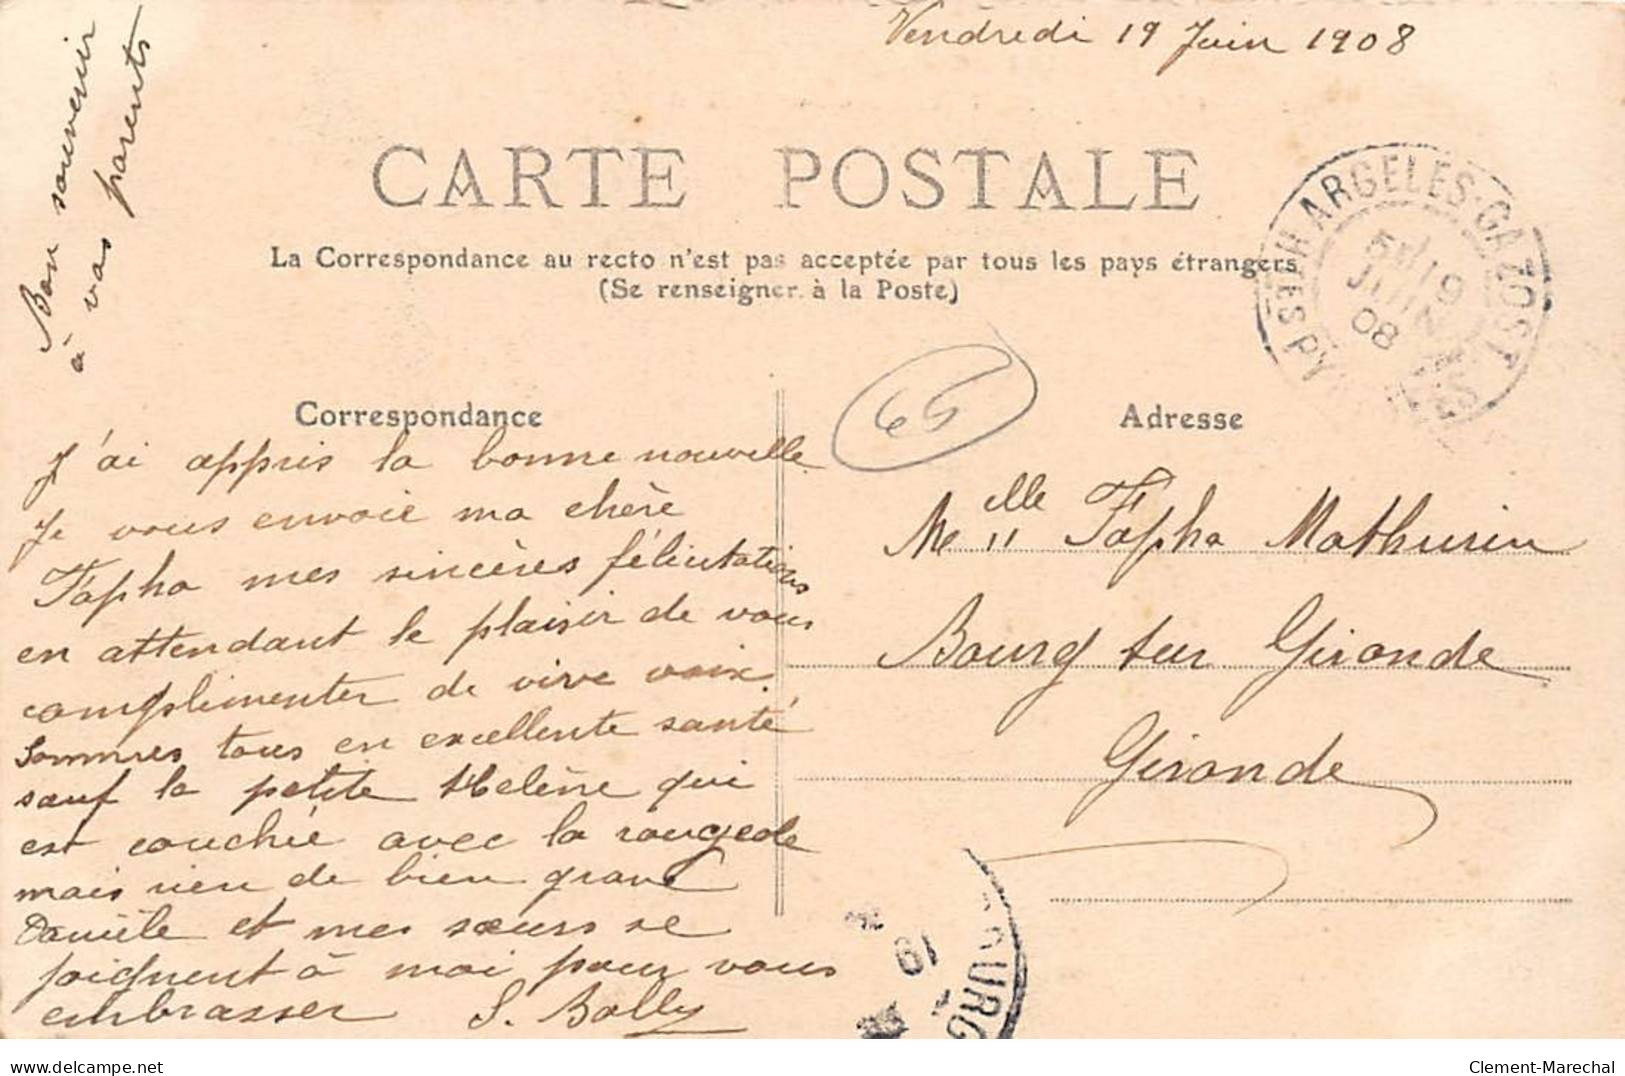 Vendredi 19 Juin 1908
Bon souvenir
à vos parents
CARTE POSTALE
La Correspondance au recto n'est pas acceptée par tous les pays étrangers
(Se renseigner à la Poste)
ARGELÈS-GAZOST
Hes PYRÉNÉES
19
JUIN
08
65
Correspondance
J'ai appris la bonne nouvelle
Je vous envoie ma chère
Fapha mes sincères félicitations
en attendant le plaisir de vous
complimenter de vive voix.
Sommes tous en excellente santé
sauf la petite Helène qui
est couchée avec la rougeole
mais rien de bien grave
Danièle et mes sœurs se
joignent à moi pour vous
embrasser S. Bolly
Adresse
Melle Fapha Mathurin
Bourg sur Gironde
Gironde
19
OURG
delcampe.net
Clement-Marechal